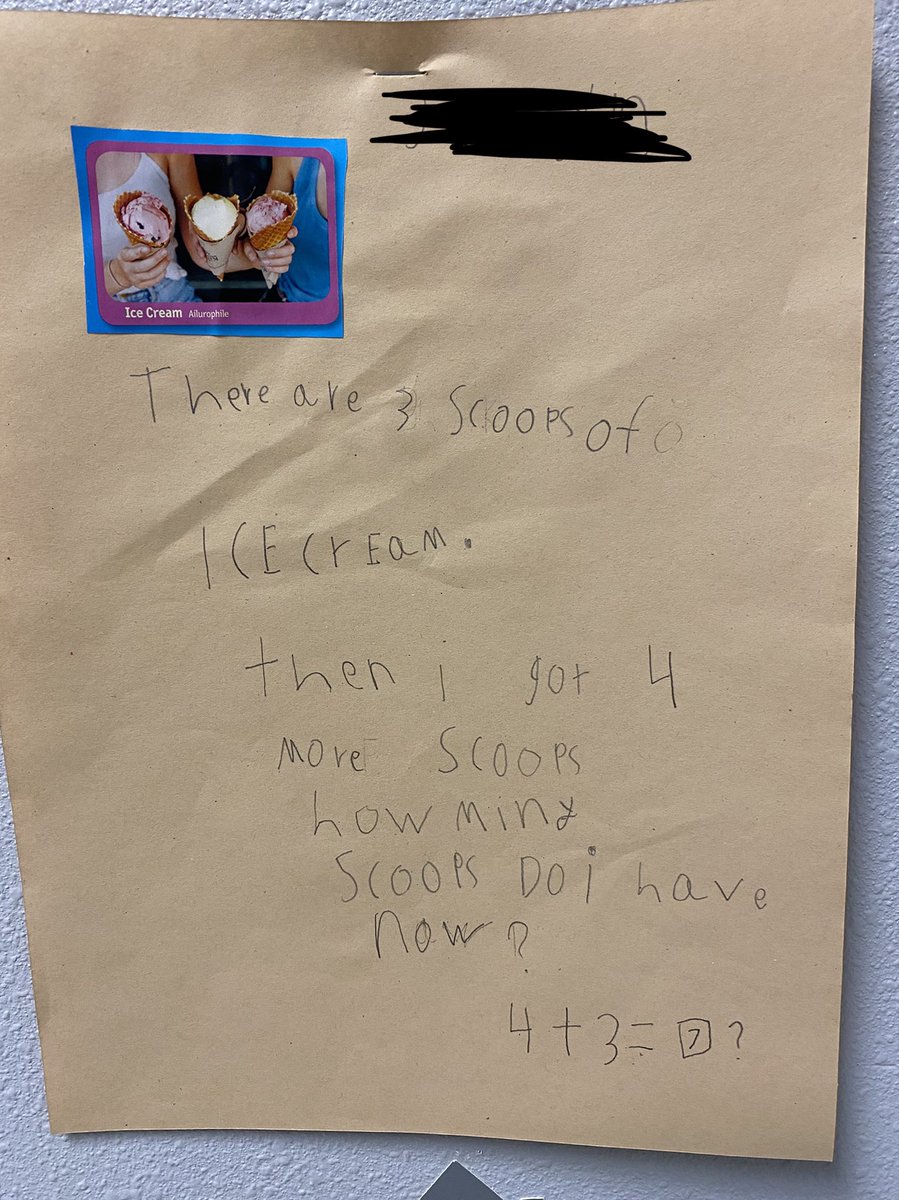 Ice Cream Ailurophile
There are 3 Scoops of
ICE CrEam.
then i got 4
more Scoops
how miny
Scoops Do i have
now?
4 + 3 = 7 ?